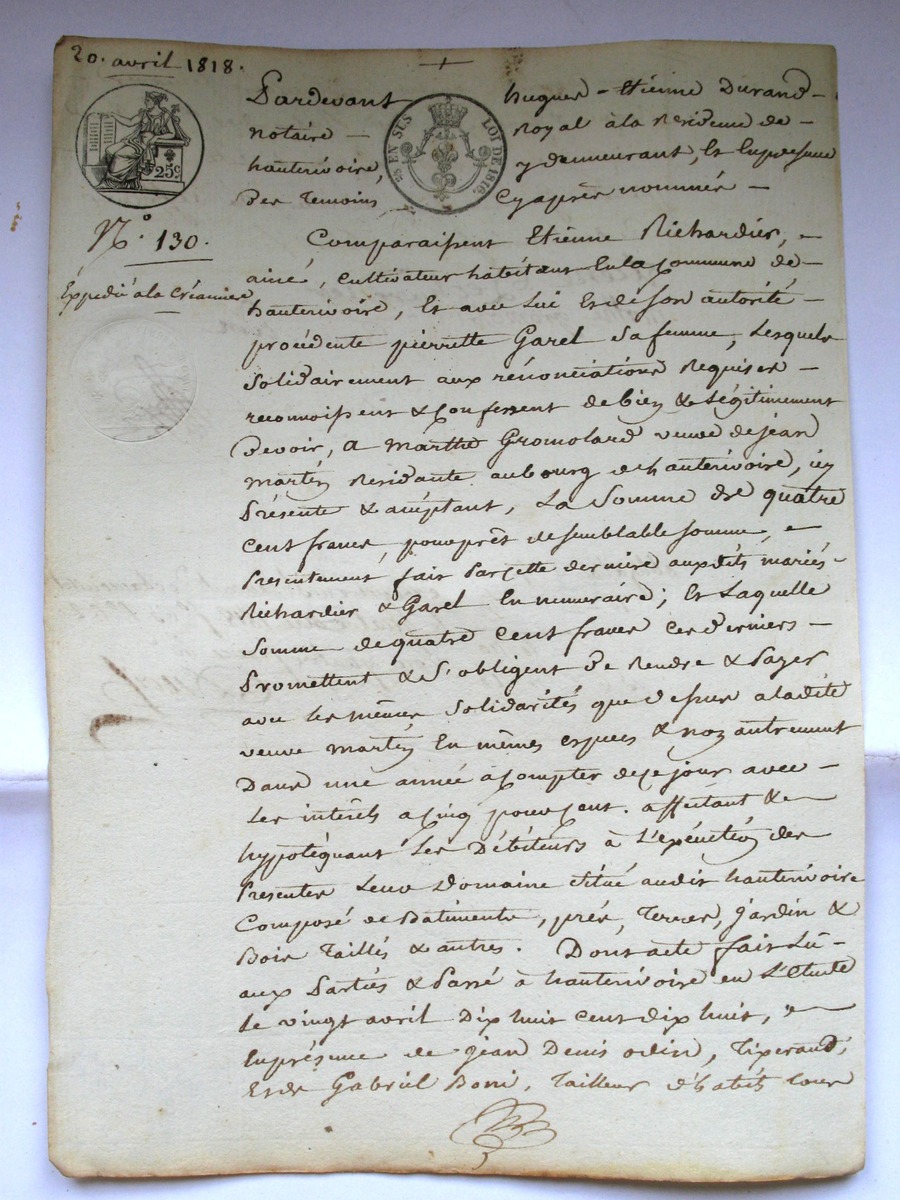 20. avril 1818.
25c
EN SUS
LOI DE 1816.
N.° 130.
Expédié à la Créancière
Pardevant hugues - Etienne Durand -
notaire - Royal à la Résidence de -
hauterivoire, y demeurant, Et En présence
Des Temoins Cy après nommés -
Comparaissent Etienne Richardier, -
ainé, cultivateur habitant En la Commune de -
hauterivoire, Et avec lui Et de Son autorité -
procédente pierrette Garel Sa femme, Lesquels
Solidairement aux rénonciations Requises -
reconnoissent & Confessent de bien & Légitimement
Devoir, a Marthe Gromolard veuve de jean
Martin Residante au bourg de hauterivoire, icy
Présente & acceptant, La Somme de quatre
Cent francs, pour prêt de semblable somme, -
Presentement fait Par Cette derniere auxdits mariés -
Richardier & Garel En numeraire; Et Laquelle
Somme de quatre Cent francs Ces Derniers -
Promettent & S'obligent De Rendre & Payer
avec les mêmes Solidarités que dessus a ladite
veuve Martin En mêmes especes & non autrement
Dans une année à Compter de Ce jour avec -
Les intérêts a Cinq pour Cent. affectant & -
hypotéquant Les Débiteurs à L'exécution des
Présentes Leur Domaine situé audit hauterivoire
Composé de Bâtiments, prés, Terres, jardin &
Bois Taillis & autres. Dont acte fait Lû -
aux Parties & Passé à hauterivoire en L'Etude
Le vingt avril Dix huit cent dix huit, -
En présence de jean Denis odin, Tixerand,
Et de Gabriel Boni, Tailleur d'habits tous